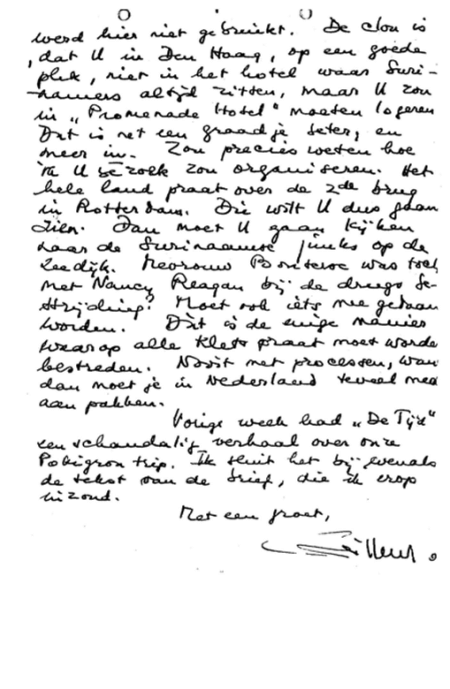 werd hier niet gebruikt. De clou is
, dat U in Den Haag, op een goede
plek, niet in het hotel waar Suri-
namers altijd zitten, maar U zou
in „Promenade Hotel" moeten logeren
Dit is net een graadje beter, en
meer in. Zou precies weten hoe
ik U bezoek zou organiseren. Het
hele land praat over de 2de brug
in Rotterdam. Die wilt U dus gaan
zien. Dan moet U gaan kijken
naar de Surinaamse junks op de
Zeedijk. Mevrouw Bouterse was toch
met Nancy Reagan bij de drugs be-
strijding? Moet ook iets mee gedaan
worden. Dit is de enige manier
waarop alle kletspraat moet worde
bestreden. Nooit met processen, wan
dan moet je in Nederland teveel men
aan pakken.
Vorige week had „De Tijd"
een schandalig verhaal over onze
Pokigron trip. Ik sluit het bij evenals
de tekst van de brief, die ik erop
inzond.
Met een groet,
Willem